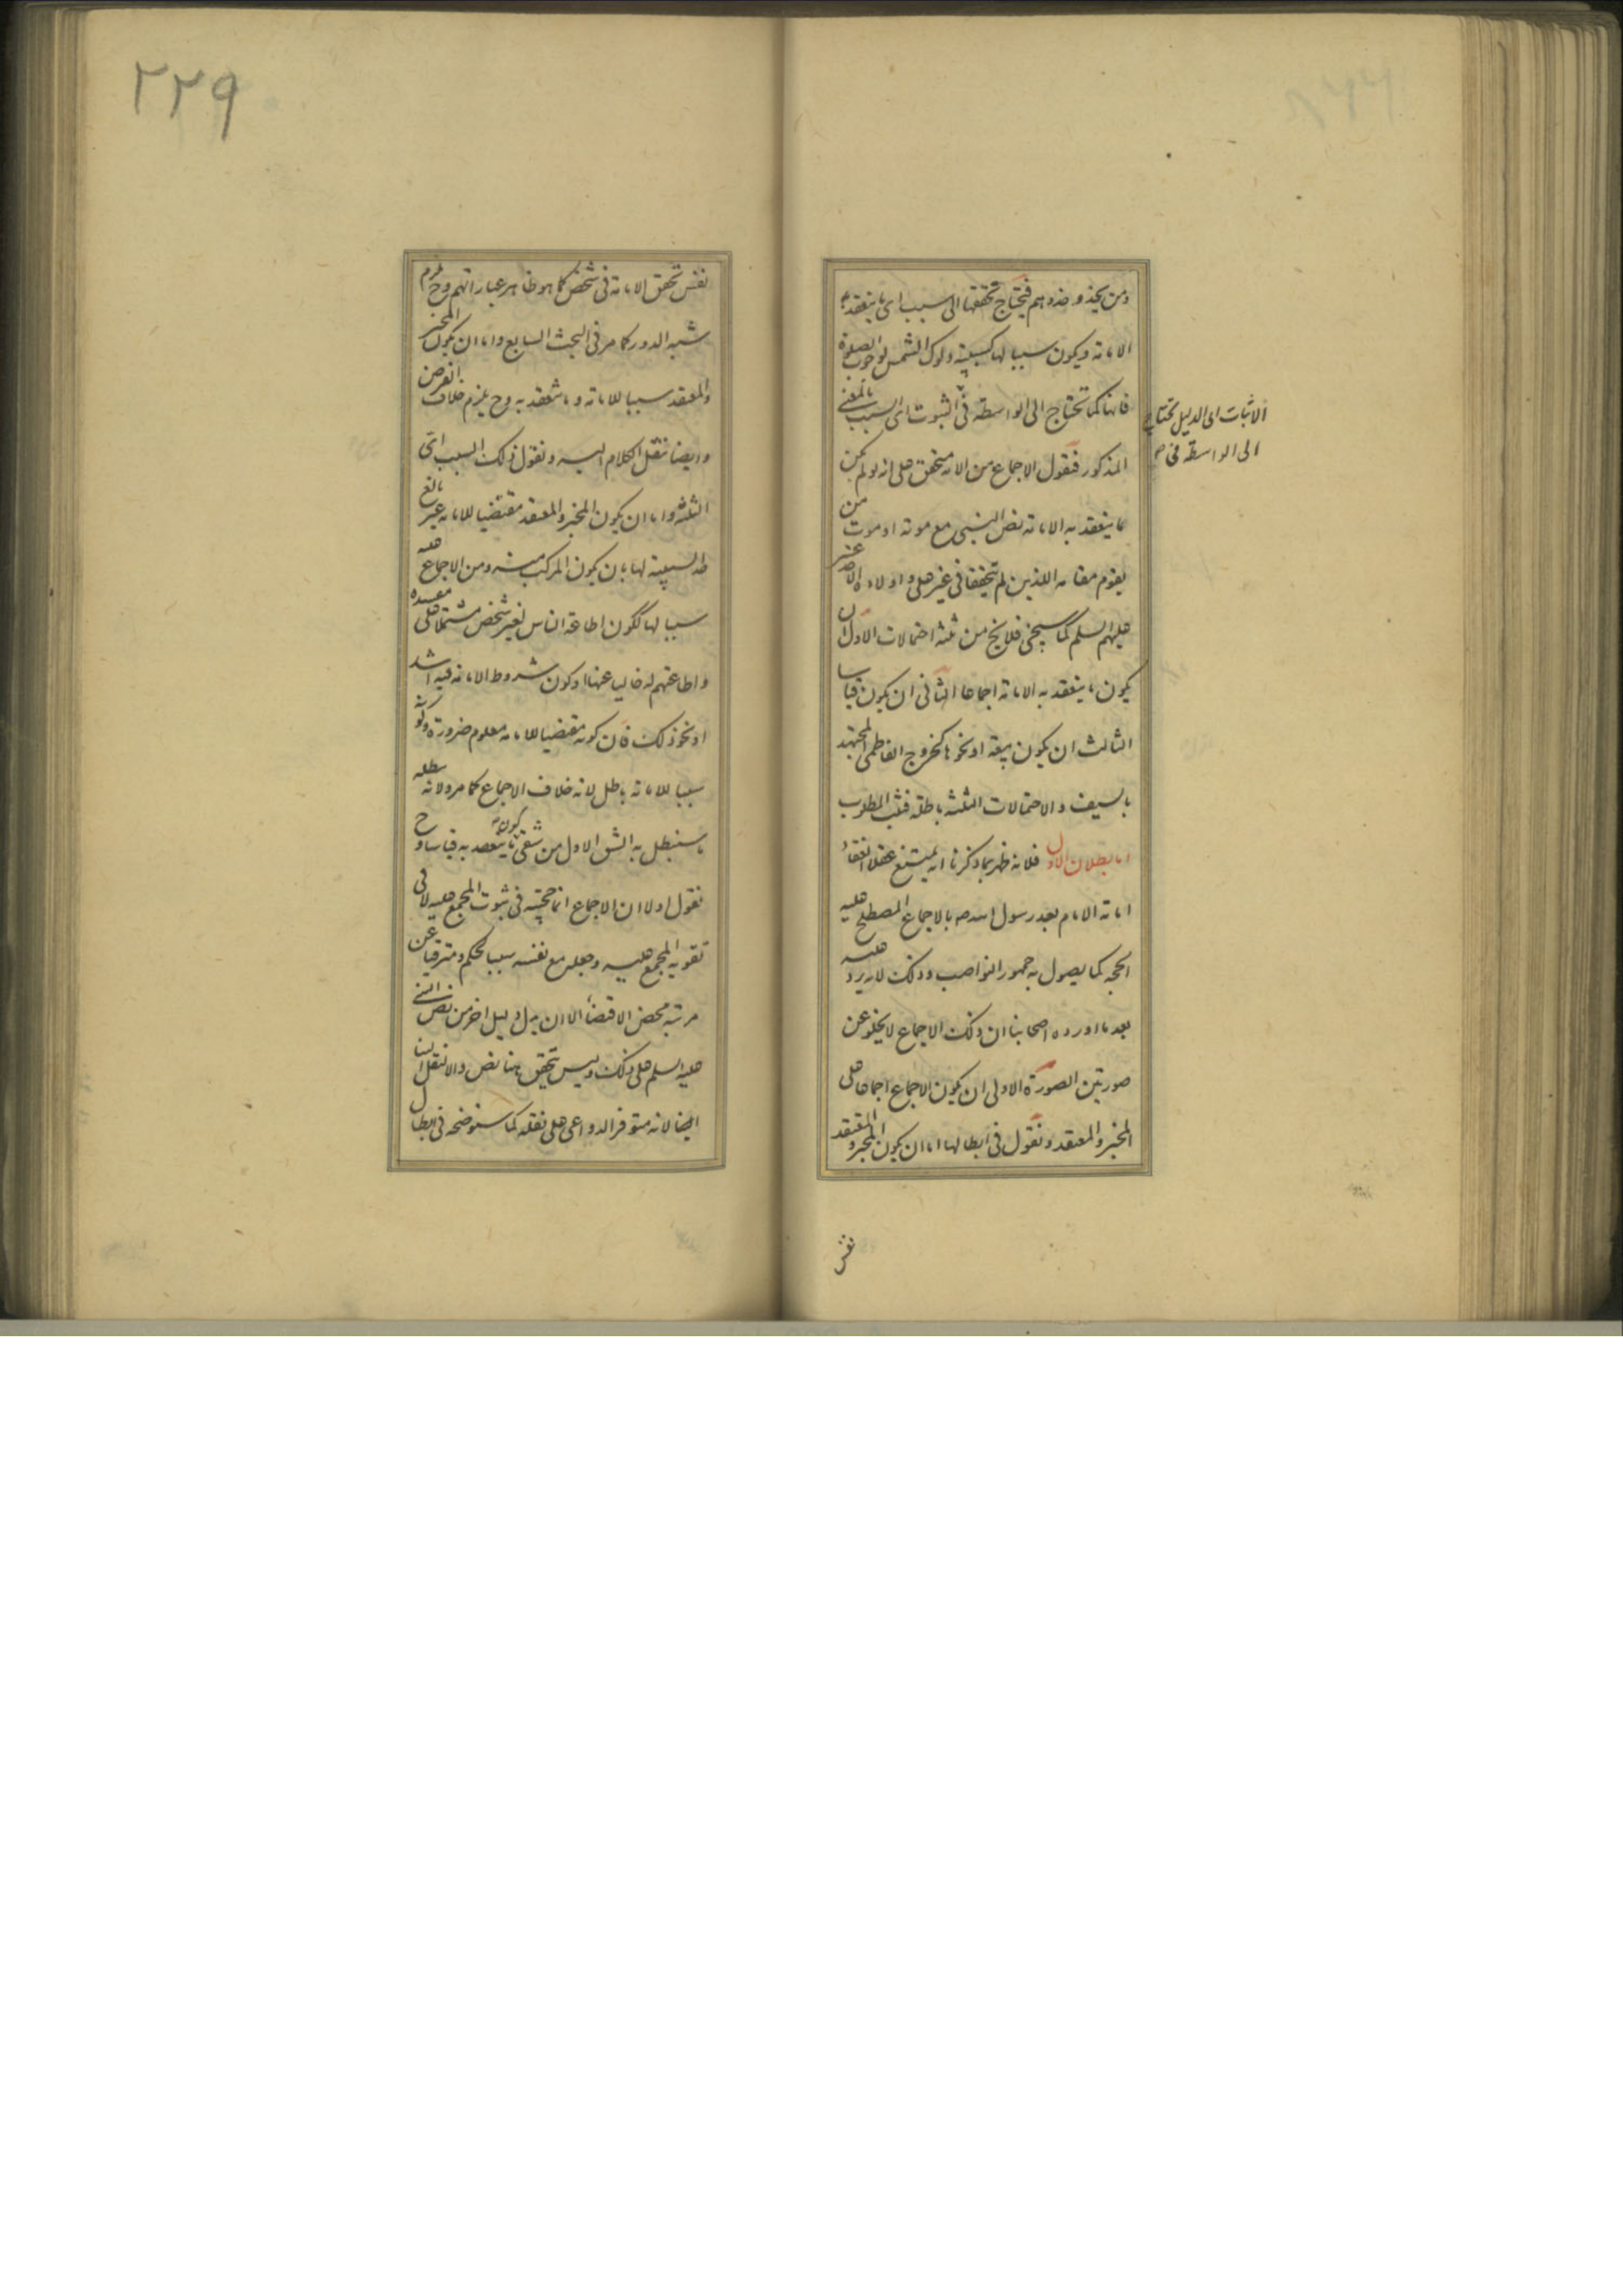 ومن يحذو حذوهم فيحتاج تحققها الى سبب اى ما ينعقد به
الامامة ويكون سببا لها كسببية دلوك الشمس لوجوب الصلوة
فانها كما تحتاج الى الواسطة فى الثبوت اى السبب بالمعنى
الاثبات اى الدليل تحتاج
الى الواسطة فى
المذكور فنقول الاجماع من الامة متحقق على انه لو لم يكن
ما ينعقد به الامامة نص النبى مع موته او موت من
يقوم مقامه اللذين لم يتحققا فى غير على واولاده الاحد عشر
عليهم السلم كما سيجئ فلا يخ من ثلثة احتمالات الاول ان
يكون ما ينعقد به الامامة اجماعا الثانى ان يكون قياسا
الثالث ان يكون بيعة او نحوها كخروج الفاطمى المجتهد
بالسيف والاحتمالات الثلثة باطلة فثبت المطلوب
اما بطلان الاول فلانه ظهر بما ذكرنا انه يمتنع عقلا انعقاد
امامة الامام بعد رسول الله صه بالاجماع المصطلح عليه
الحجه كما يصول به جمهور النواصب وذلك لانه يرد عليه
بعد ما اورده اصحابنا ان ذلك الاجماع لا يخلو عن
صورتين الصورة الاولى ان يكون الاجماع اجماعا على
المخبر والمعتقد ونقول فى ابطالها اما ان يكون المخبر والمعتقد
نفس
٢٢٩
نفس تحقق الامامة فى شخص كما هو ظاهر عباراتهم وح يلزم
شبه الدور كما مر فى البحث السابع واما ان يكون المخبر
والمعتقد سببا للامامة وما تنعقد به وح يلزم خلاف الفرض
وايضا ننقل الكلام اليه ونقول ذلك السبب اى
الثلثة واما ان يكون المخبر والمعتقد مقتضيا للامامة غير بالغ
حد السببية لها بان يكون المركب منه ومن الاجماع عليه
سببا لها ككون اطاعة الناس لغير شخص مشتملا على مفسدة
واطاعتهم له خاليا عنها او كون شروط الامامة فيه اشد
او نحو ذلك فان كونه مقتضيا للامامة معلوم ضرورة وكونه
سببا للامامة باطل لانه خلاف الاجماع كما مر ولانه يبطله
ما سنبطل به الشق الاول من شقى كون ما ينعقد به قياسا وح
نقول اولا ان الاجماع انما حجيته فى ثبوت المجمع عليه لا فى
تقوية المجمع عليه وجعله مع نفسه سببا لحكم ومترقيا عن
مرتبة محض الاقتضاء الا ان يدل دليل اخر من نص النبى
عليه السلم على ذلك وليس يتحقق هنا نص والا لنقل الينا
ايضا لانه متوفر الدواعى على نقله كما سنوضحه فى ابطال